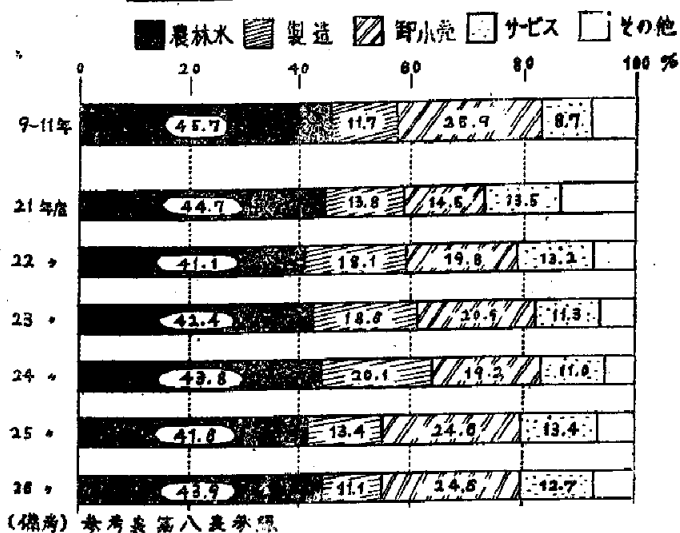 農林水 製造 卸小売 サービス その他
0 20 40 60 80 100 %
9~11年 45.7 11.7 25.9 8.7
21年度 44.7 13.8 14.5 13.5
22 〃 41.1 18.1 19.8 13.2
23 〃 42.4 18.6 20.9 11.3
24 〃 43.8 20.1 19.2 11.0
25 〃 41.8 13.4 24.6 13.4
26 〃 43.9 11.1 24.5 12.7
(備考) 参考表第八表参照